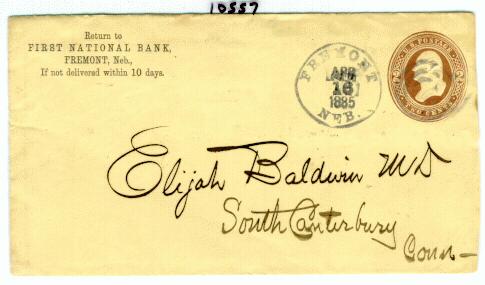 10557
Return to
FIRST NATIONAL BANK,
FREMONT, Neb.,
If not delivered within 10 days.
FREMONT
APR
16
1885
NEB.
U.S. POSTAGE
TWO CENTS
Elijah Baldwin MD
South Canterbury
Conn-